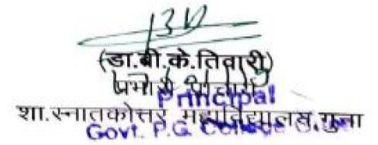 (डा.बी.के.तिवारी)
प्रभारी प्राचार्य
Principal
शा.स्नातकोत्तर महाविद्यालय,गुना
Govt. P.G. College